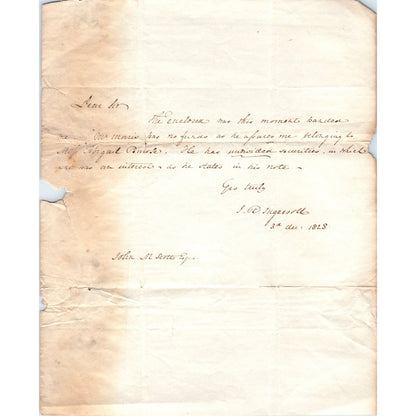 Dear Sir
The enclosed was this moment handed
me. Mr Maris has no funds as he assures me belonging to
Abigail He has undivided securities, in which
she has an interest - as he states in his note -
Yrs truly
J. R. Ingersoll
3d dec. 1828
John M Scott Esq.